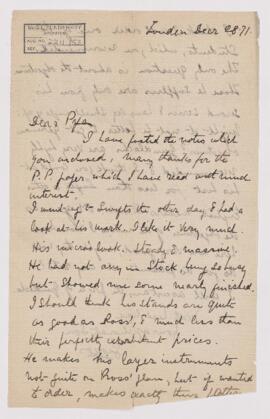 London Decr 28 71
Dear Piper
I have posted the notes which
you inclosed, many thanks for the
P.P. paper which I have read with much
interest.
I went up to Swifts the other day & had a
look at his work. I like it very much.
His micros look. Steady & massive.
He had not any in Stock, being so busy
but showed me some nearly finished.
I should think his stands are quite
as good as Ross', & much less than
their perfectly exorbitant prices.
He makes his larger instruments
not quite on Ross' plan, but if wanted
to order, makes exactly their pattern